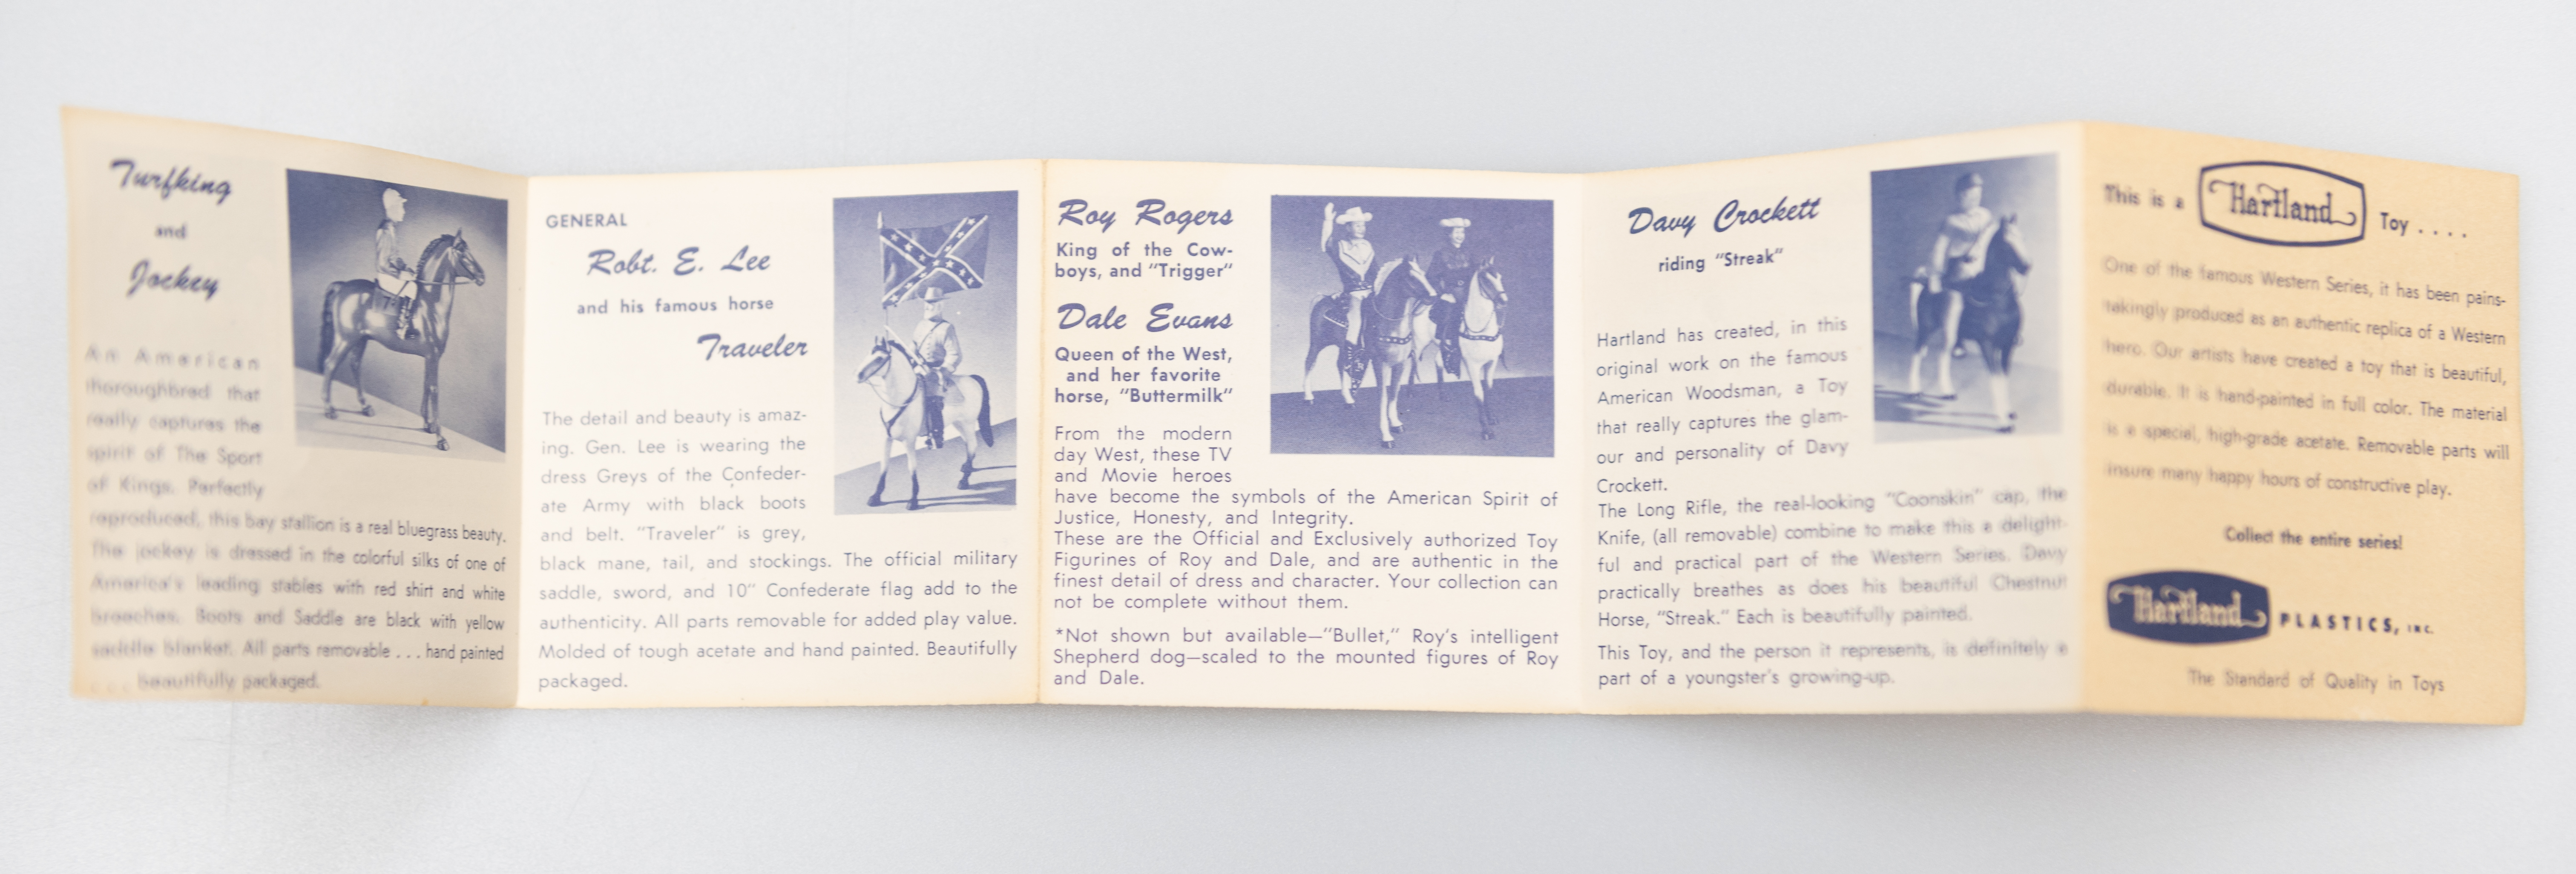 Turfking
and
Jockey
An American
thoroughbred that
really captures the
spirit of The Sport
of Kings. Perfectly
reproduced, this bay stallion is a real bluegrass beauty.
The jockey is dressed in the colorful silks of one of
America's leading stables with red shirt and white
breeches. Boots and Saddle are black with yellow
saddle blanket. All parts removable . . . hand painted
. . . beautifully packaged.
GENERAL
Robt. E. Lee
and his famous horse
Traveler
The detail and beauty is amaz-
ing. Gen. Lee is wearing the
dress Greys of the Confeder-
ate Army with black boots
and belt. "Traveler" is grey,
black mane, tail, and stockings. The official military
saddle, sword, and 10" Confederate flag add to the
authenticity. All parts removable for added play value.
Molded of tough acetate and hand painted. Beautifully
packaged.
Roy Rogers
King of the Cow-
boys, and "Trigger"
Dale Evans
Queen of the West,
and her favorite
horse, "Buttermilk"
From the modern
day West, these TV
and Movie heroes
have become the symbols of the American Spirit of
Justice, Honesty, and Integrity.
These are the Official and Exclusively authorized Toy
Figurines of Roy and Dale, and are authentic in the
finest detail of dress and character. Your collection can
not be complete without them.
*Not shown but available—"Bullet," Roy's intelligent
Shepherd dog—scaled to the mounted figures of Roy
and Dale.
Davy Crockett
riding "Streak"
Hartland has created, in this
original work on the famous
American Woodsman, a Toy
that really captures the glam-
our and personality of Davy
Crockett.
The Long Rifle, the real-looking "Coonskin" cap, the
Knife, (all removable) combine to make this a delight-
ful and practical part of the Western Series. Davy
practically breathes as does his beautiful Chestnut
Horse, "Streak." Each is beautifully painted.
This Toy, and the person it represents, is definitely a
part of a youngster's growing-up.
This is a Hartland Toy . . . .
One of the famous Western Series, it has been pains-
takingly produced as an authentic replica of a Western
hero. Our artists have created a toy that is beautiful,
durable. It is hand-painted in full color. The material
is a special, high-grade acetate. Removable parts will
insure many happy hours of constructive play.
Collect the entire series!
Hartland PLASTICS, INC.
The Standard of Quality in Toys